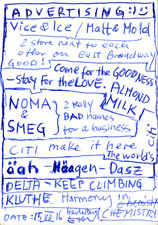 ADVERTISING :) :)
Vice & Ice / Matt & Mold
2 store next to each
other on East Broadway
GOOD! Come for the GOODNESS
- stay for the LOVE. ALMOND
MILK
NOMA & SMEG } 2 really
BAD names
for a business
CITI make it here
The world's
citi
ääh Häagen-Dasz
DELTA - KEEP CLIMBING
KLUTHE Harmony in
CHEMISTRY
DATE: 15. VII 16 Heidelberg